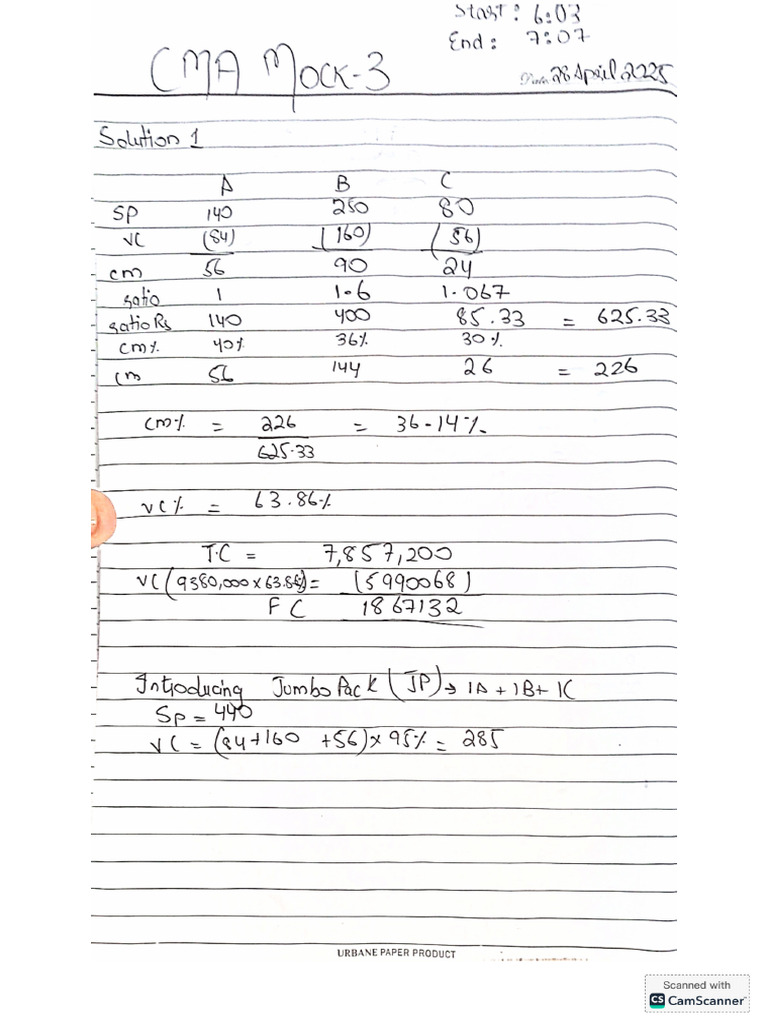 Start : 6:03
End : 7:07
CMA Mock-3
Date 28 April 2025
Solution 1
A B C
SP 140 250 80
VC (84) (160) (56)
cm 56 90 24
ratio 1 1.6 1.067
ratio Rs 140 400 85.33 = 625.33
cm% 40% 36% 30%
cm 56 144 26 = 226
cm% = 226 = 36.14%
625.33
VC% = 63.86%
T.C = 7,857,200
VC (9380,000 x 63.86%) = (5990068)
FC 1867132
Introducing Jumbo Pack (JP) → 1A + 1B + 1C
SP = 440
VC = (84+160 +56) x 95% = 285
URBANE PAPER PRODUCT
Scanned with
CS CamScanner